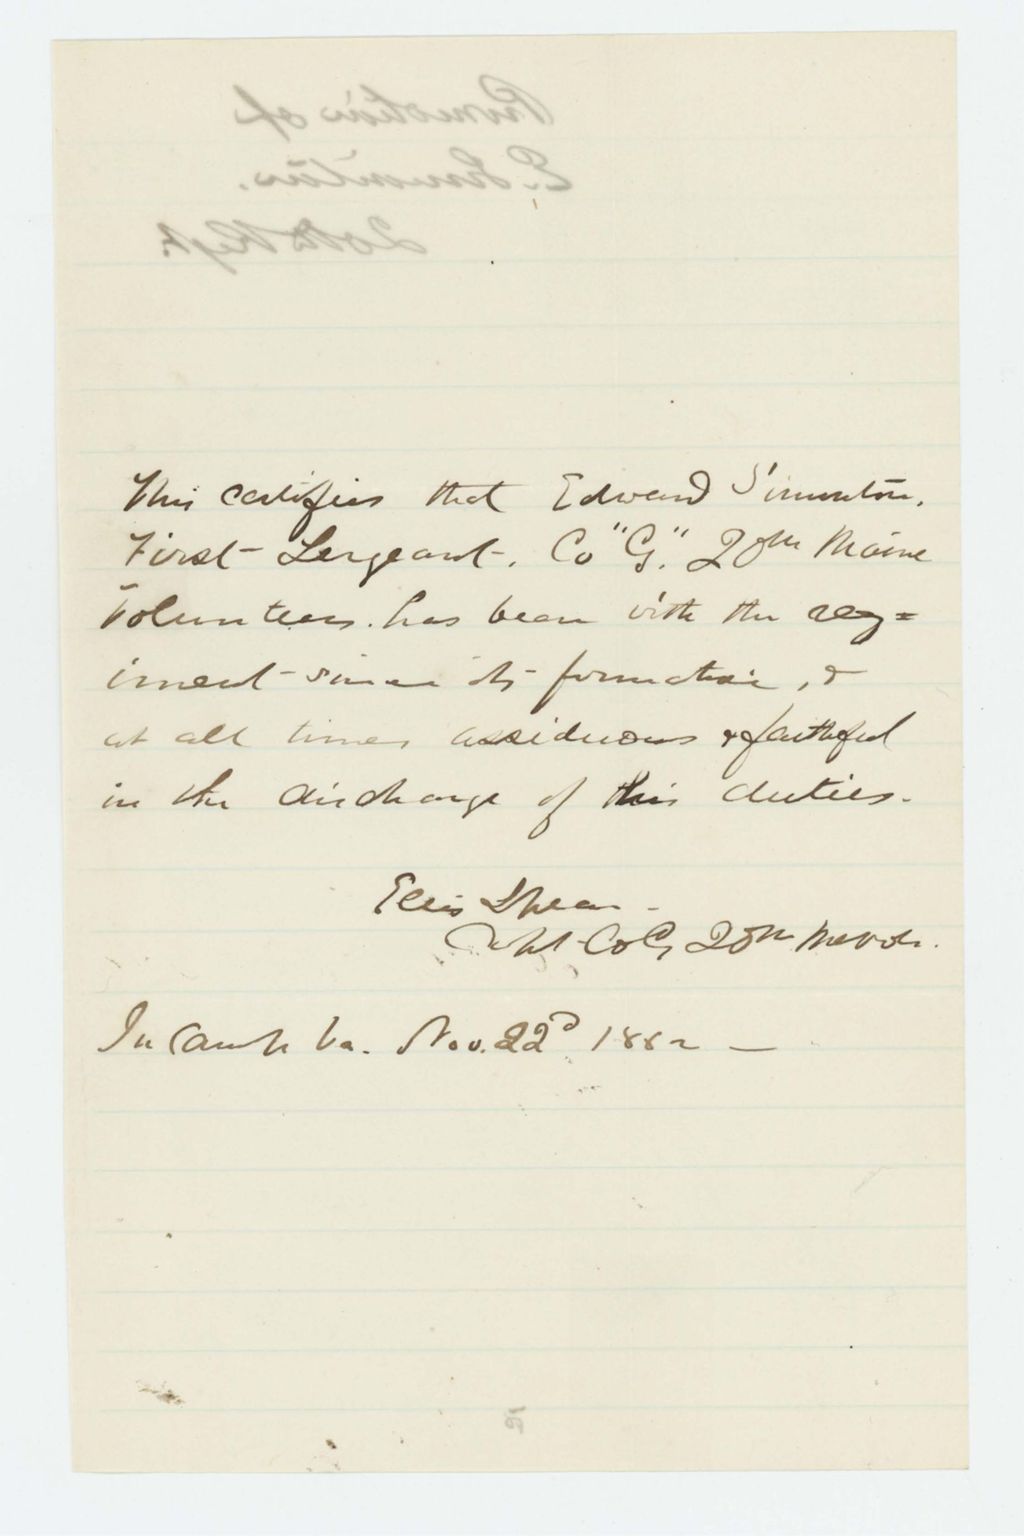 Promotion of
E. Simonton.
20th Regt.
This certifies that Edward Simonton,
First Sergeant, Co "G." 20th Maine
Volunteers. has been with the reg=
iment since its formation, &
at all times assiduous & faithful
in the discharge of his duties.
Ellis Spear
Capt Co G, 20th Me Vols.
In Camp Va. Nov. 22d 1862 —